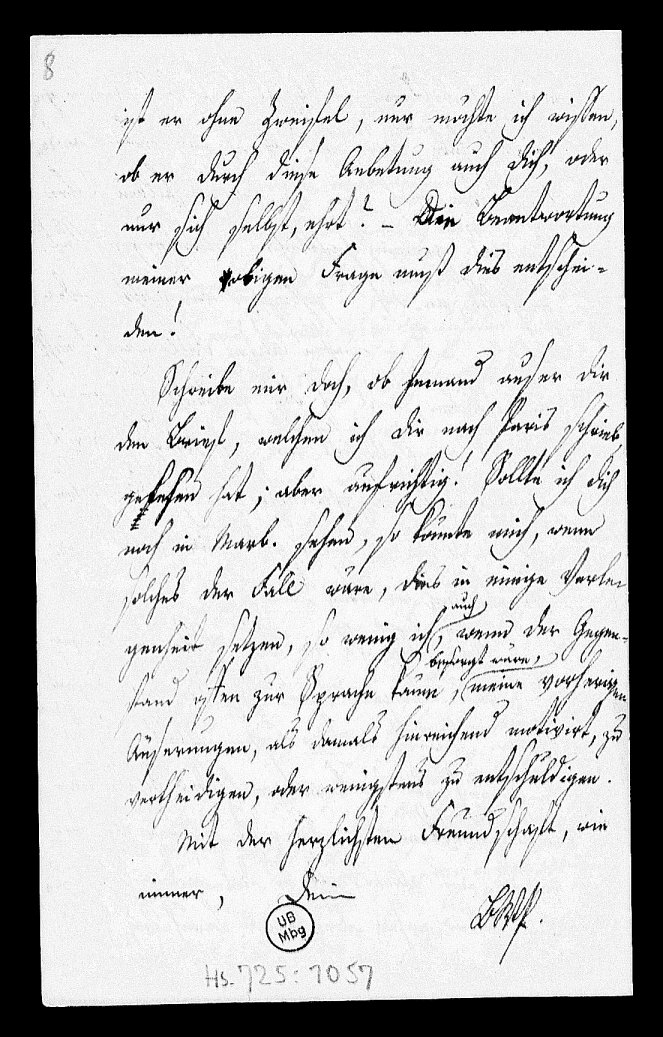 8
ist er ohne Zweifel, nur möchte ich wissen,
ob er durch diese Anbetung auch dich, oder
nur sich selbst, ehrt? – Die Beantwortung
meiner obigen Frage muß dies entschei-
den!
Schreibe mir doch, ob Jemand außer dir
den Brief, welchen ich dir nach Paris schrieb,
gesehen hat; aber aufrichtig! Sollte ich dich
noch in Marb. sehen, so könnte mich, wenn
solches der Fall wäre, dies in einige Verle-
genheit setzen, so wenig ich, wenn der Gegen-
auch
stand offen zur Sprache käme, meine vorherigen
besorgt wäre,
Äußerungen, als damals hinreichend motivirt, zu
vertheidigen, oder wenigstens zu entschuldigen.
Mit der herzlichsten Freundschaft, wie
immer, Dein
UB
Mbg
Hs. 725: 1057